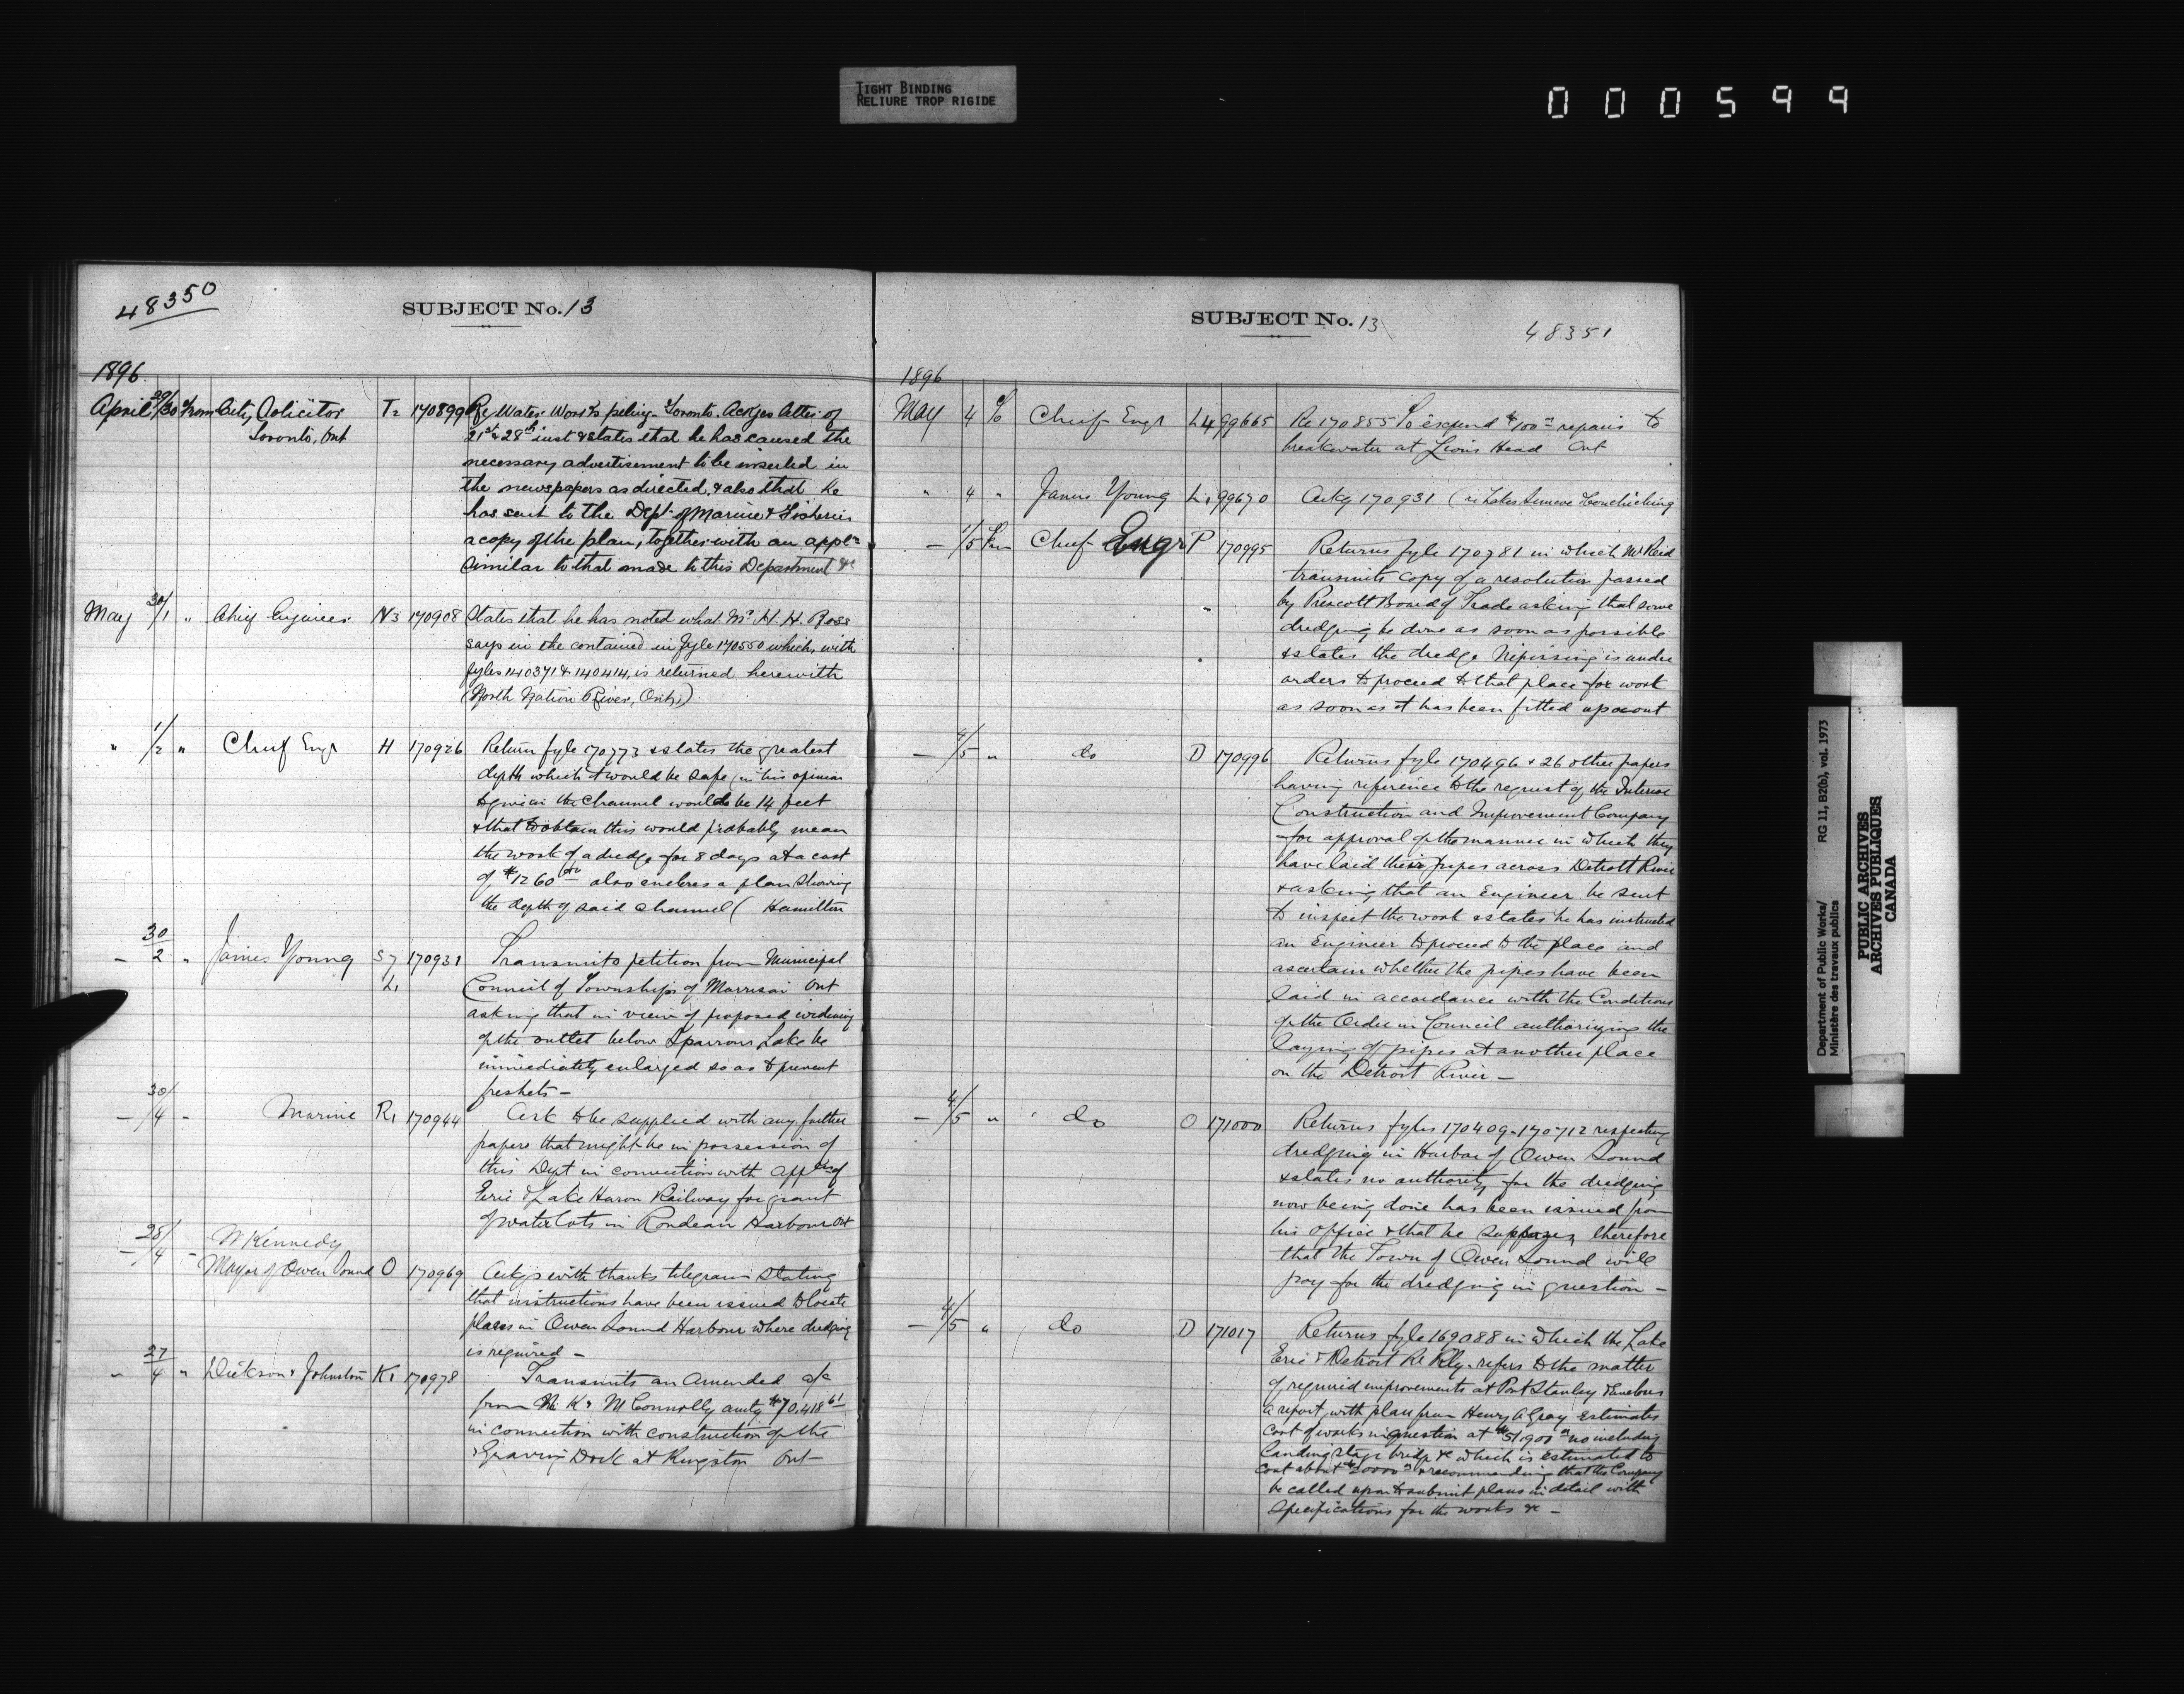 TIGHT BINDING
RELIURE TROP RIGIDE
000599
48350
SUBJECT No. 13
1896
April 29/30 From City Solicitor T2 170899 Re Water Works piling Toronto. Ackges letter of
Toronto, Ont 21st & 28th inst & states that he has caused the
necessary advertisement to be inserted in
the newspapers as directed, & also that he
has sent to the Dept of Marine & Fisheries
a copy of the plan, together with an appln
similar to that made to this Department &c
May 30/1 " Chief Engineer N3 170908 States that he has noted what Mr H. H. Ross
says in the contained in fyle 170550 which, with
fyles 140371 & 140414, is returned herewith
(North Nation River, Ont.)
" 1/2 " Chief Engr H 170926 Return fyle 170773 & states the greatest
depth which it would be safe (in his opinion
to give in the channel would be 14 feet
& that to obtain this would probably mean
the work of a dredge for 8 days at a cost
of $1260 00 also encloses a plan showing
the depth of said channel ( Hamilton
- 30/2 " James Young S7 170931 Transmits petition from Municipal
L1 Council of Townships of Morrison Ont
asking that in view of proposed widening
of the outlet below Sparrow Lake be
immediately enlarged so as to prevent
freshets -
- 30/4 - Marine R1 170944 Ask to be supplied with any further
papers that might be in possession of
this Dept in connection with appln of
Erie & Lake Huron Railway for grant
of water lots in Rondeau Harbour Ont
- 28/4 - M Kennedy
Mayor of Owen Sound O 170969 Ackgs with thanks telegram stating
that instructions have been issued to locate
places in Owen Sound Harbour where dredging
is required -
" 27/4 " Dickson & Johnston K1 170978 Transmits an amended a/c
from N. K & M Connolly amtg $70,418 61
in connection with construction of the
Graving Dock at Kingston Ont -
SUBJECT No. 13
48351
1896
May 4 To Chief Engr L4 99665 Re 170855 To expend $100 00 repairs to
breakwater at Lions Head Ont
" 4 " James Young L1 99670 Ackg 170931 (re Lakes Simcoe & Couchiching
- 1/5 From Chief Engr P 170995 Returns fyle 170781 in which Mr Reid
transmits copy of a resolution passed
by Prescott Board of Trade asking that some
dredging be done as soon as possible
& states the dredge Nipissing is under
orders to proceed to that place for work
as soon as it has been fitted up & out
- 4/5 " do D 170996 Returns fyle 170496 & 26 other papers
having reference to the request of the Interior
Construction and Improvement Company
for approval of the manner in which they
have laid their pipes across Detroit River
& asking that an Engineer be sent
to inspect the work & states he has instructed
an Engineer to proceed to the place and
ascertain whether the pipes have been
laid in accordance with the Conditions
of the Order in Council authorizing the
laying of pipes at another place
on the Detroit River -
- 4/5 " do O 171000 Returns fyles 170409 - 170712 respecting
dredging in Harbor of Owen Sound
& states no authority for the dredging
now being done has been issued from
his office & that he supposes therefore
that the Town of Owen Sound will
pay for the dredging in question -
- 4/5 " do D 171017 Returns fyle 169088 in which the Lake
Erie & Detroit Re Rly - refers to the matter
of required improvements at Port Stanley & encloses
a report with plan from Henry A Gray estimates
cost of works in question at $51900 00 no including
landing stage bridge &c which is estimated to
cost about $20000 00 & recommending that the Company
be called upon to submit plans in detail with
specifications for the works &c -
Department of Public Works/ RG 11, B2(b), vol. 1973
Ministère des travaux publics
PUBLIC ARCHIVES
ARCHIVES PUBLIQUES
CANADA